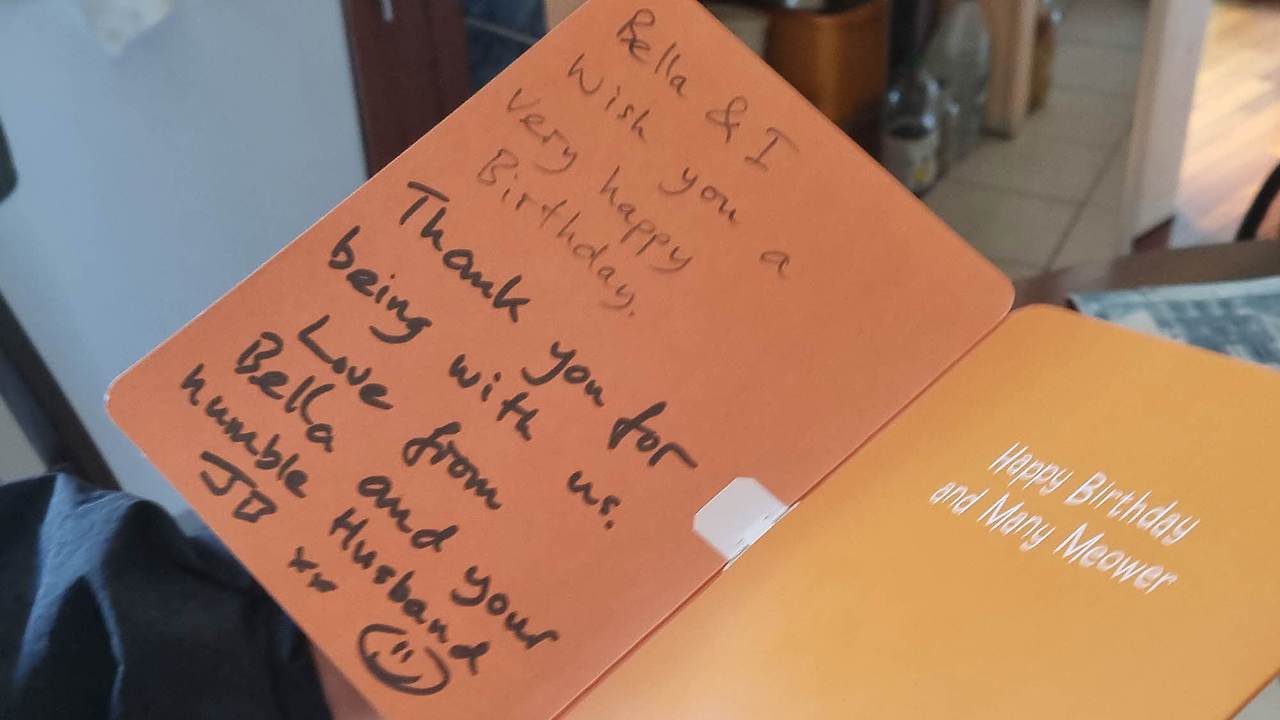 Bella & I
Wish you a
very happy
Birthday.
Thank you for
being with us.
Love from
Bella and your
humble Husband
JB
xx
Happy Birthday
and Many Meower